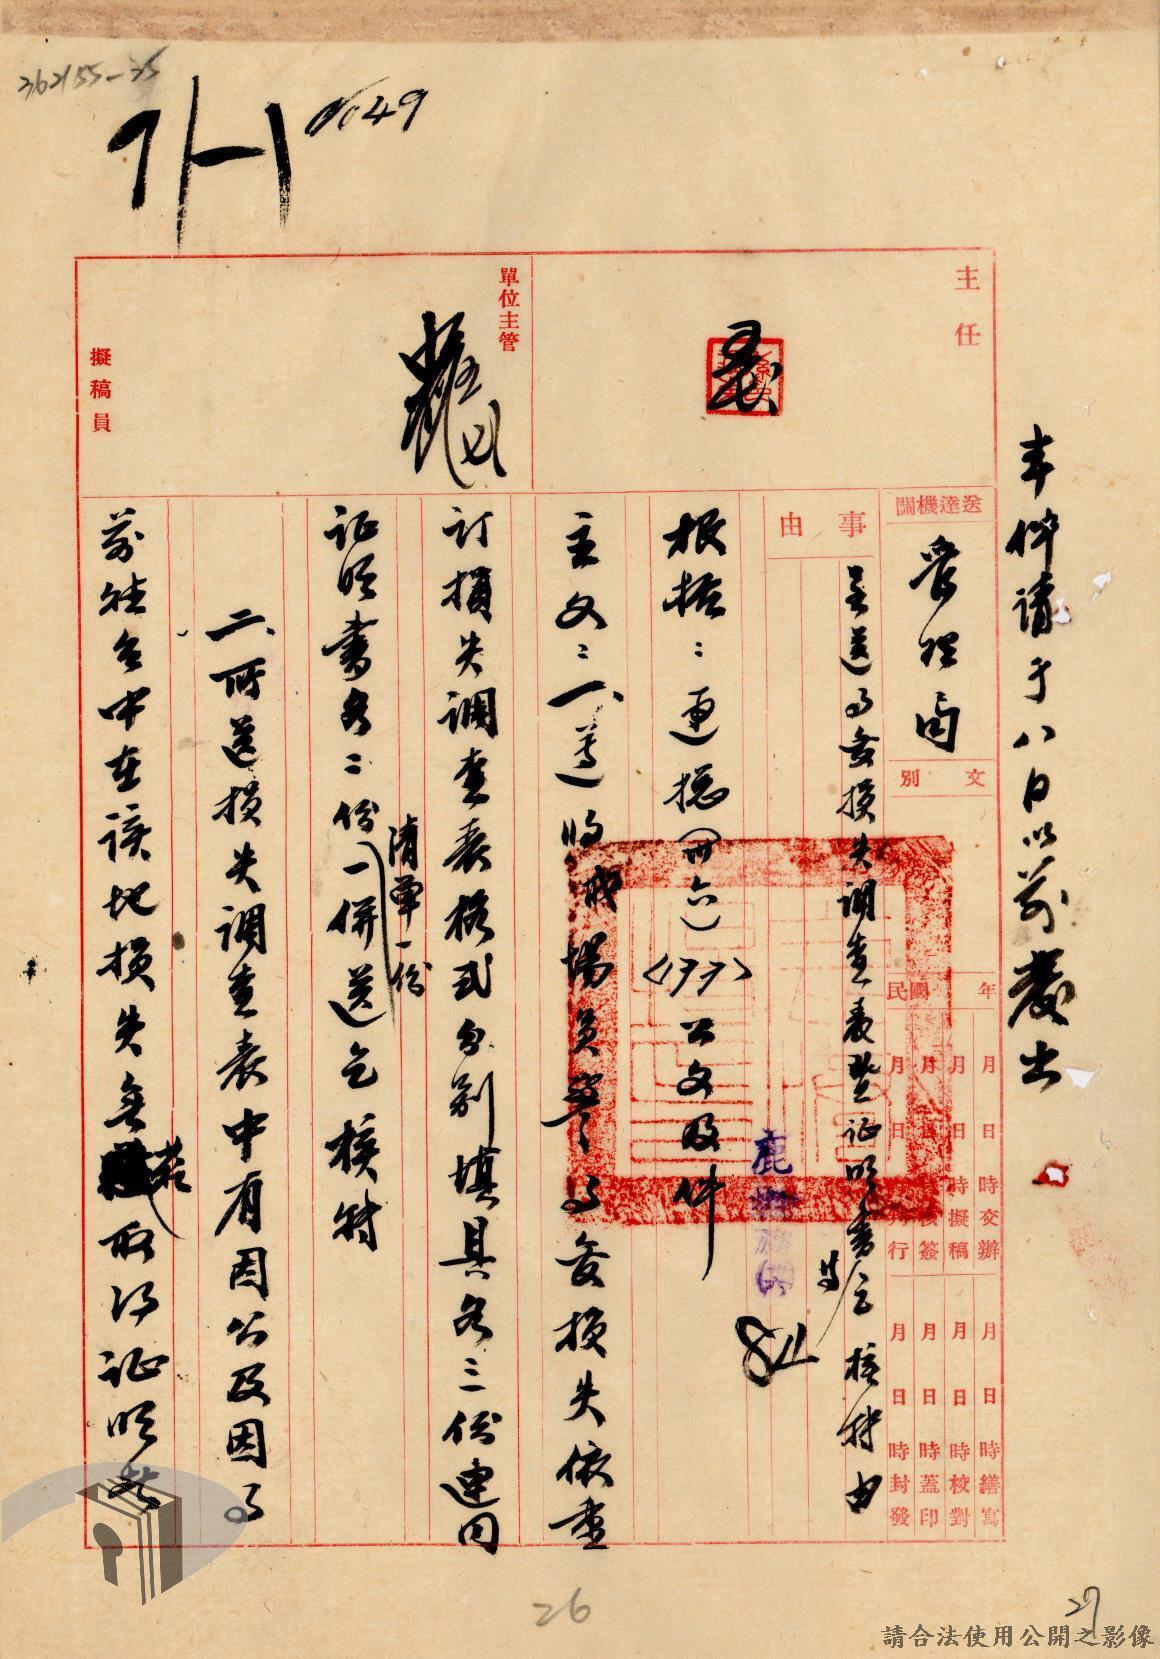 362155-35
71-1
049
本件請于八日以前發出
主任
單位主管
擬稿員
送達機關
管理局
文別
事由
呈送事變損失調查表暨证明書等乞核轉由
民國 年
月 日 時交辦
月 日 時擬稿
月 日 核簽
月 日 判行
月 日 時繕寫
月 日 時校對
月 日 時蓋印
月 日 時封發
根据:更總(卅六)
公文及件
主文:一、遵將
場員
事變損失依重
訂損失調查表格式分別填具各三份連同
证明書各二份
清單一份
一併送乞核轉
二、所送損失調查表中有因公及因事
前往台中在該地損失無
若
取得证明者
26
27
請合法使用公開之影像